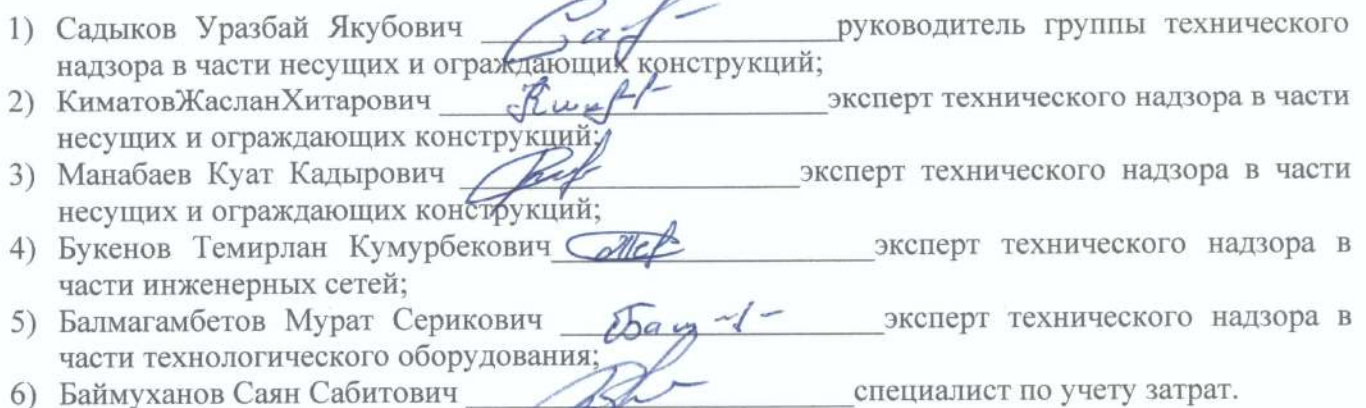 1) Садыков Уразбай Якубович руководитель группы технического
надзора в части несущих и ограждающих конструкций;
2) КиматовЖасланХитарович эксперт технического надзора в части
несущих и ограждающих конструкций;
3) Манабаев Куат Кадырович эксперт технического надзора в части
несущих и ограждающих конструкций;
4) Букенов Темирлан Кумурбекович эксперт технического надзора в
части инженерных сетей;
5) Балмагамбетов Мурат Серикович эксперт технического надзора в
части технологического оборудования;
6) Баймуханов Саян Сабитович специалист по учету затрат.